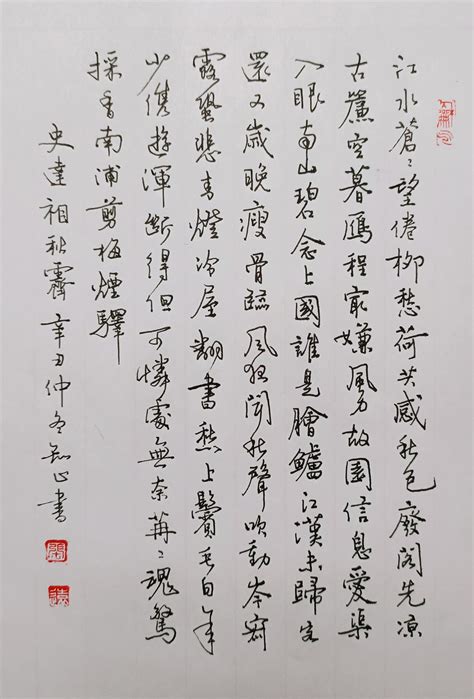 江水蒼〻望倦柳愁荷共感秋色廢閣先涼
古簾空暮鴈程最嫌風力故園信息愛渠
入眼南山碧念上國誰是膾鱸江漢未歸客
還又歲晚瘦骨臨風夜聞秋聲吹動岑寂
露蛩悲青燈冷屋翻書愁上鬢毛白年
少儁遊渾斷得但可憐處無奈苒〻魂驚
採香南浦剪梅煙驛
史達祖秋霽 辛丑仲冬止書